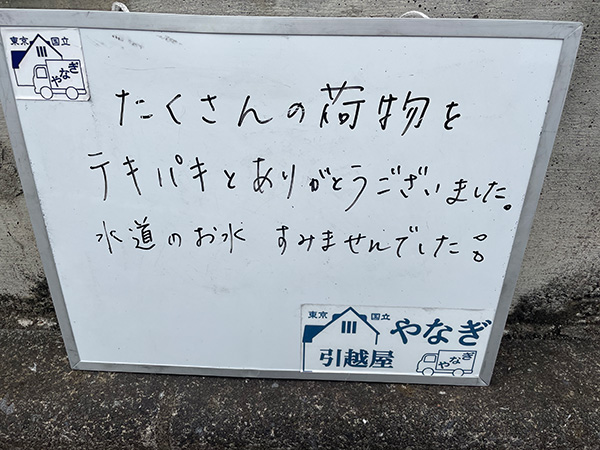 東京 国立
やなぎ
たくさんの荷物を
テキパキとありがとうございました。
水道のお水 すみませんでした。
東京 国立
やなぎ
引越屋
やなぎ